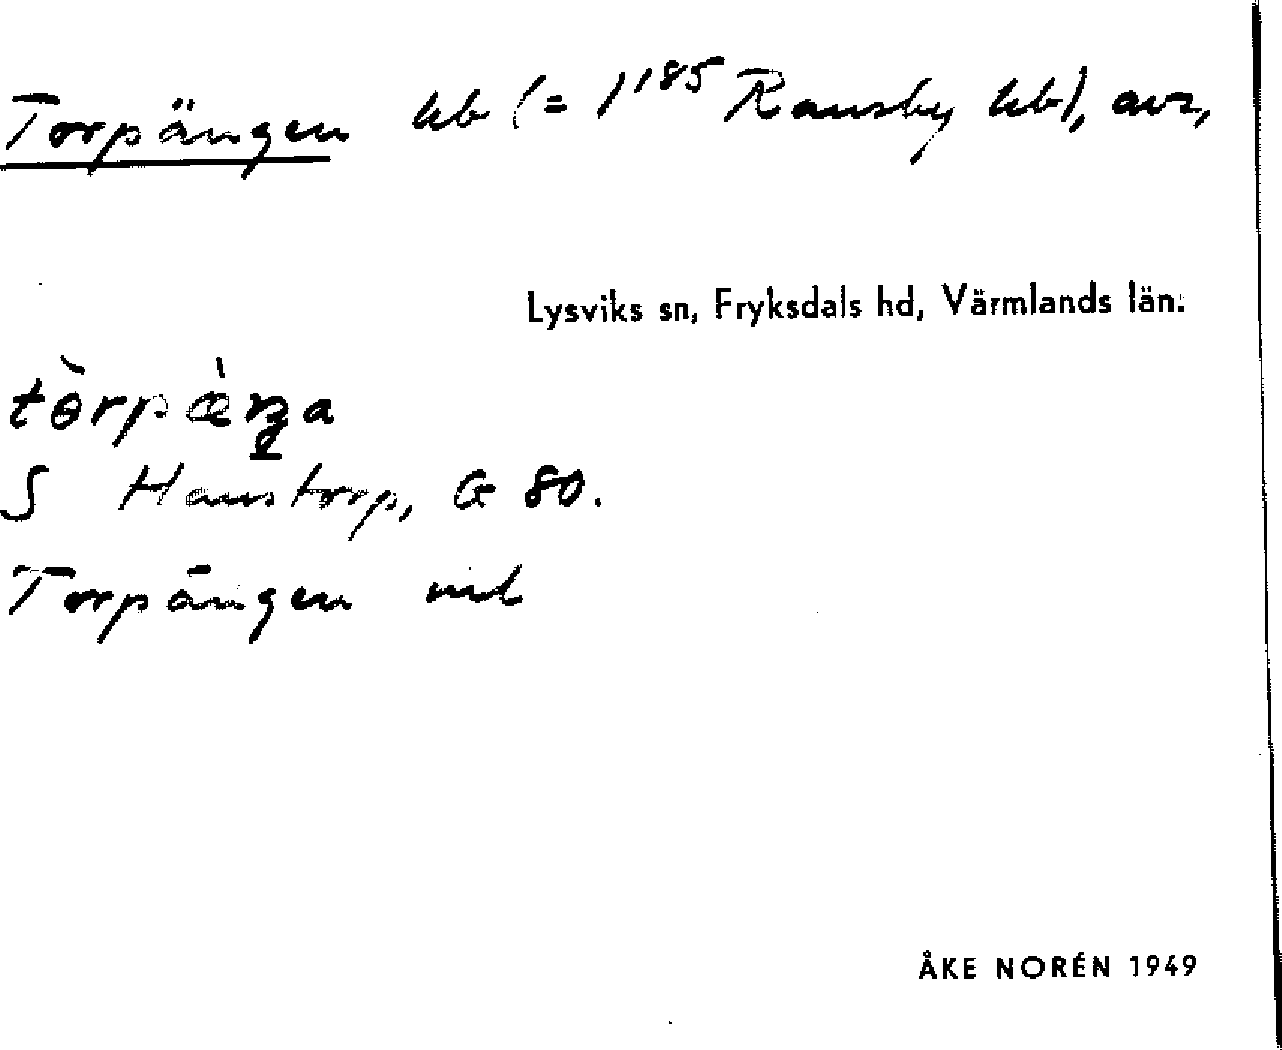 Torpängen hb (= 1¹⁸⁵ Ransby hb), avs,
Lysviks sn, Fryksdals hd, Värmlands län.
S Hanstorp, G 80.
Torpängen
ÅKE NORÉN 1949